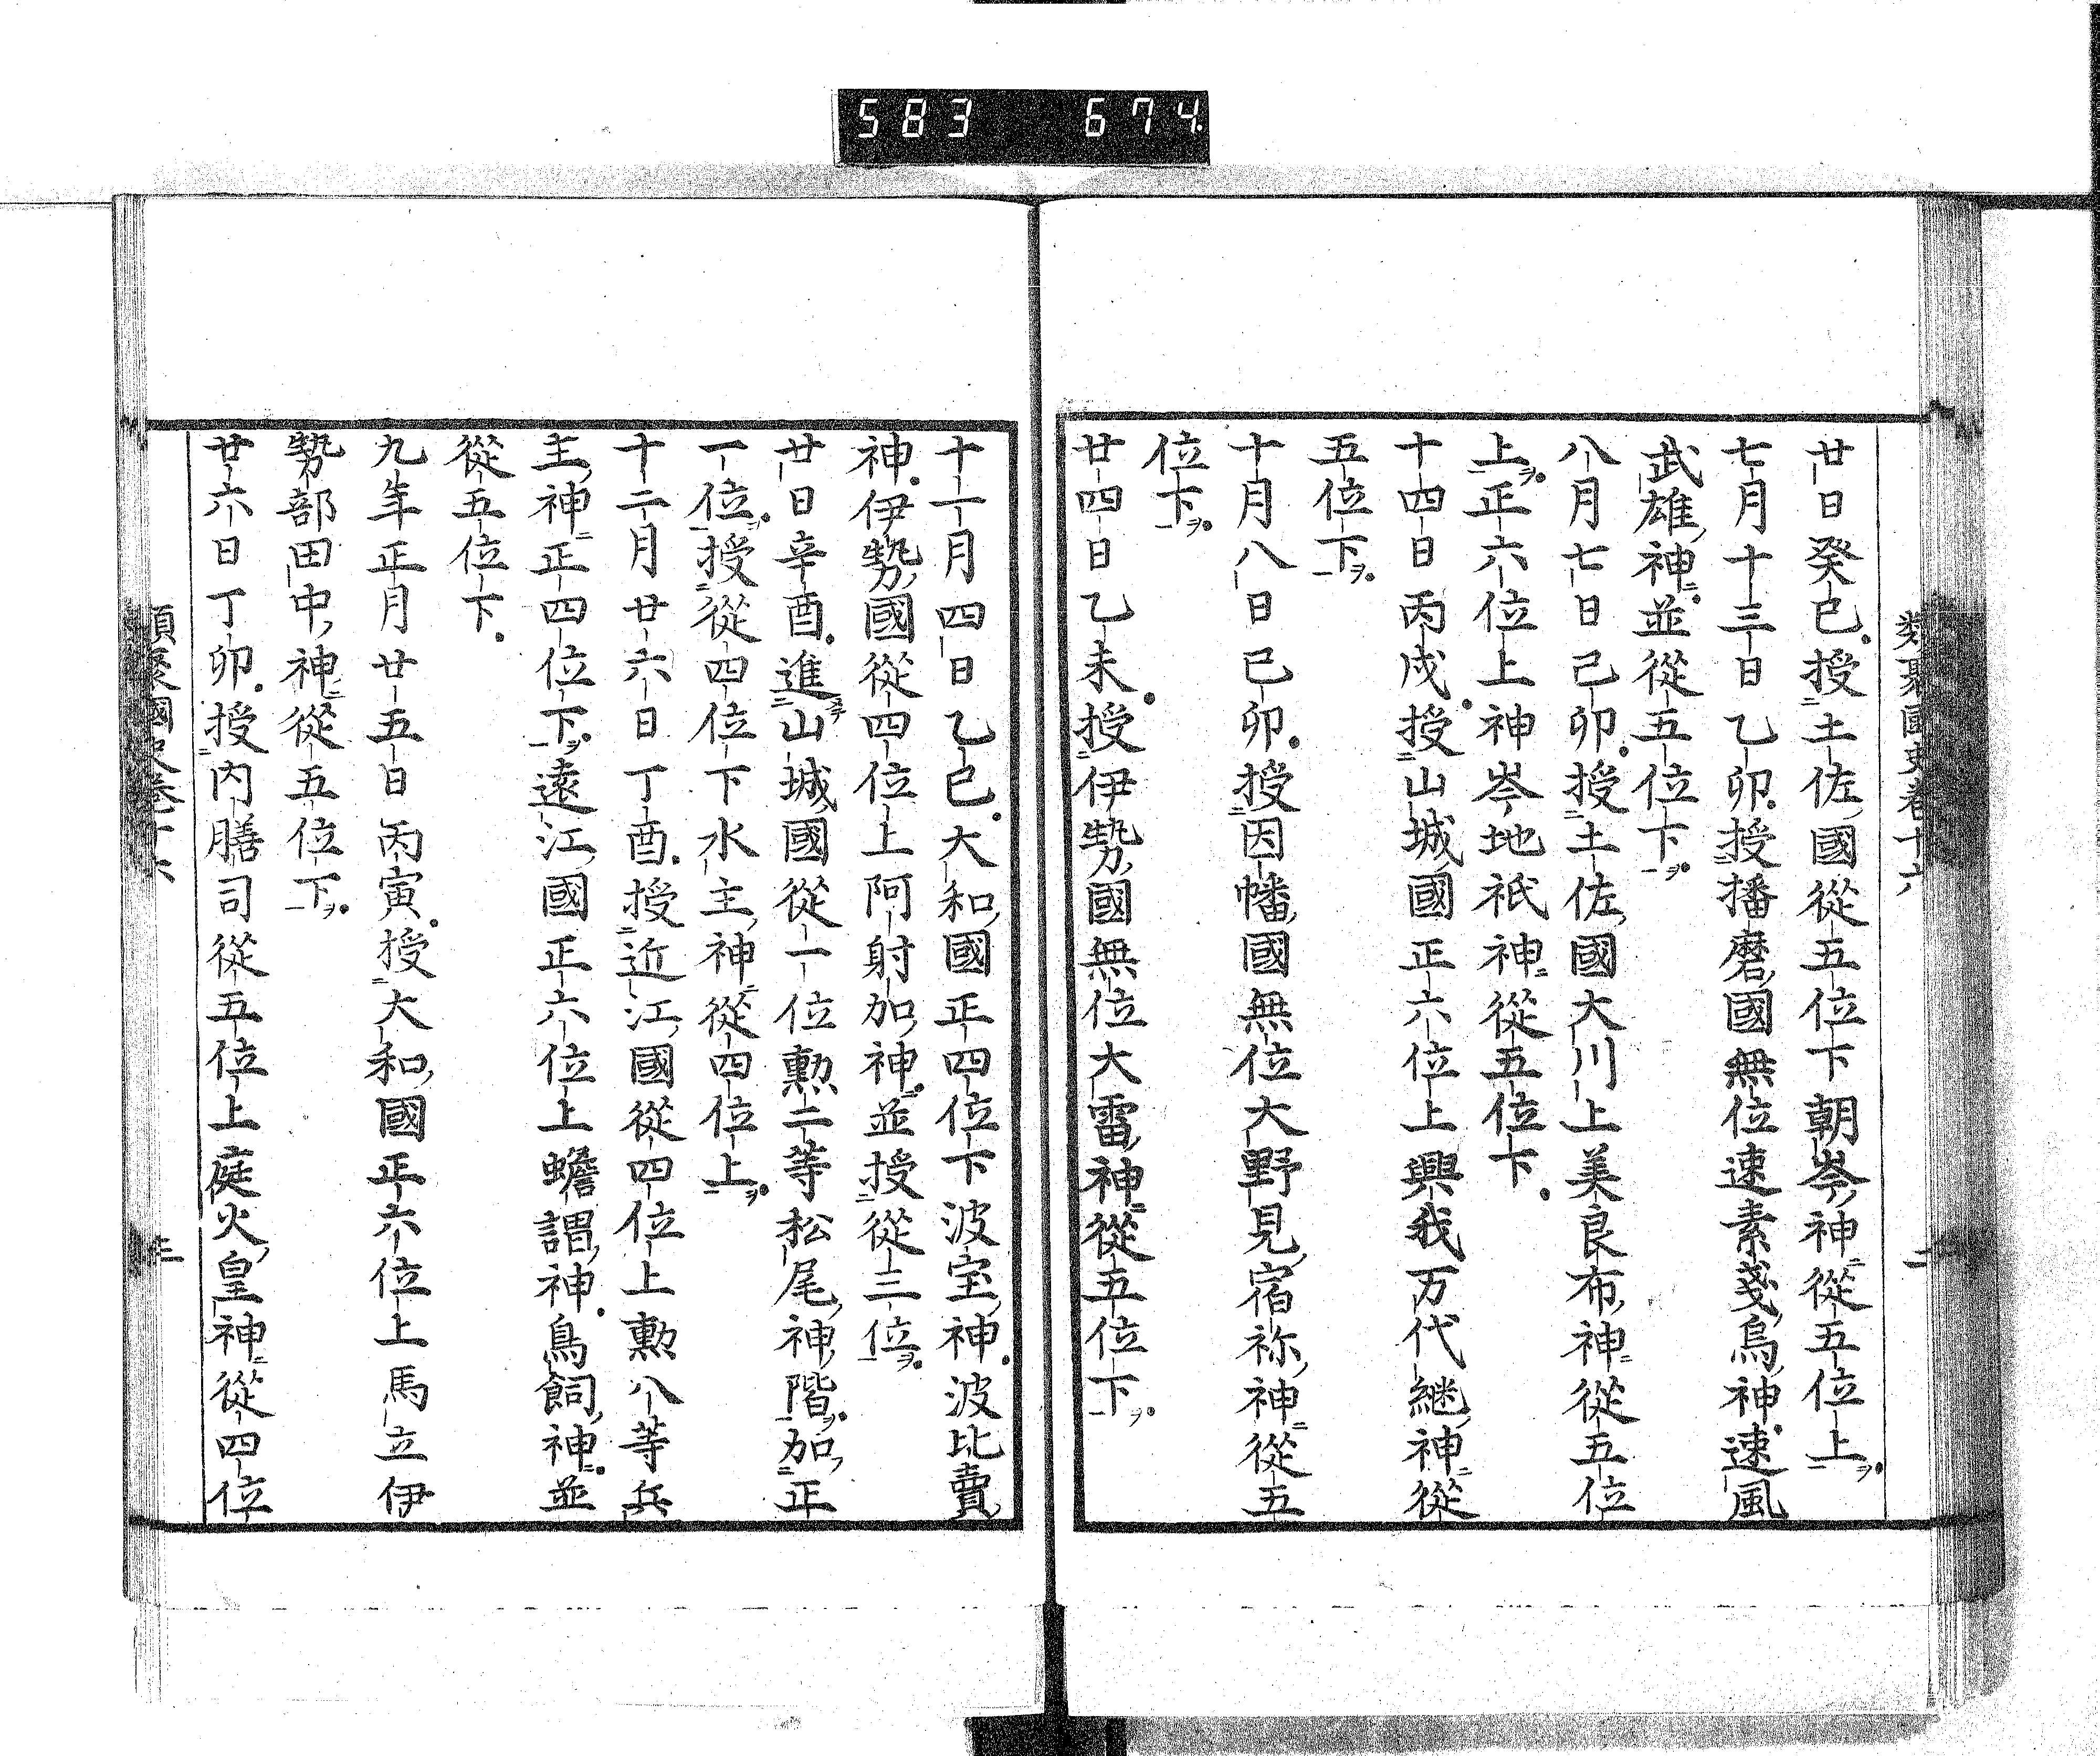 583 674
類聚國史卷十六
二
廿日癸巳授土佐國從五位下朝岑神從五位上
七月十三日乙卯授播磨國無位速素戔烏神速風
武雄神並從五位下
八月七日己卯授土佐國大川上美良布神從五位
上正六位上神岑地祇神從五位下
十四日丙戌授山城國正六位上興我万代継神從
五位下
十月八日己卯授因幡國無位大野見宿祢神從五
位下
廿四日乙未授伊勢國無位大雷神從五位下
十一月四日乙巳大和國正四位下波宝神波比賣
神伊勢國從四位上阿射加神並授從三位
廿日辛酉進山城國從一位勲二等松尾神階加正
一位授從四位下水主神從四位上
十二月廿六日丁酉授近江國從四位上勲八等兵
主神正四位下遠江國正六位上蟾謂神鳥飼神並
從五位下
九年正月廿五日丙寅授大和國正六位上馬立伊
勢部田中神從五位下
廿六日丁卯授内膳司從五位上庭火皇神從四位
類聚國史卷十六
三